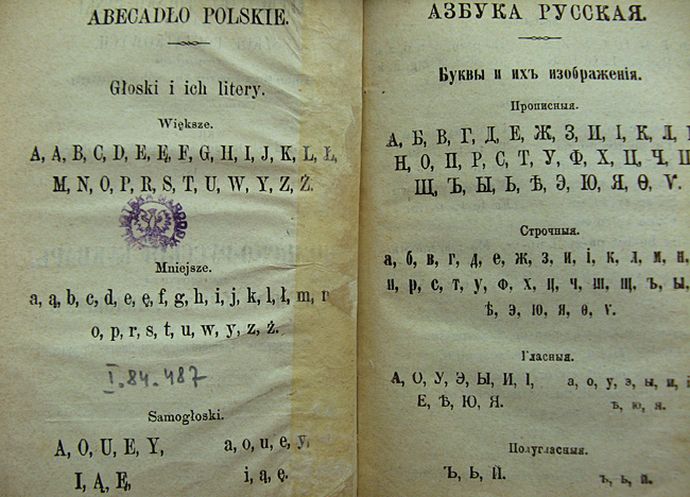 ABECADŁO POLSKIE.
Głoski i ich litery.
Większe.
A, Ą, B, C, D, E, Ę, F, G, H, I, J, K, L, Ł,
M, N, O, P, R, S, T, U, W, Y, Z, Ż.
Mniejsze.
a, ą, b, c, d, e, ę, f, g, h, i, j, k, l, ł, m, n
o, p, r, s, t, u, w, y, z, ż.
I.84.487
Samogłoski.
A, O, U, E, Y, a, o, u, e, y,
I, Ą, Ę, i, ą, ę.
АЗБУКА РУССКАЯ.
Буквы и ихъ изображенія.
Прописныя.
А, Б, В, Г, Д, Е, Ж, З, И, І, К, Л,
Н, О, П, Р, С, Т, У, Ф, Х, Ц, Ч, Ш
Щ, Ъ, Ы, Ь, Ѣ, Э, Ю, Я, Ѳ, Ѵ.
Строчныя.
а, б, в, г, д, е, ж, з, и, і, к, л, м, н,
п, р, с, т, у, ф, х, ц, ч, ш, щ, ъ, ы,
ѣ, э, ю, я, ѳ, ѵ.
Гласныя.
А, О, У, Э, Ы, И, І, а, о, у, э, ы, и, і
Е, Ѣ, Ю, Я. ѣ, ю, я.
Полугласныя.
Ъ, Ь, Й. ъ, ь, й.